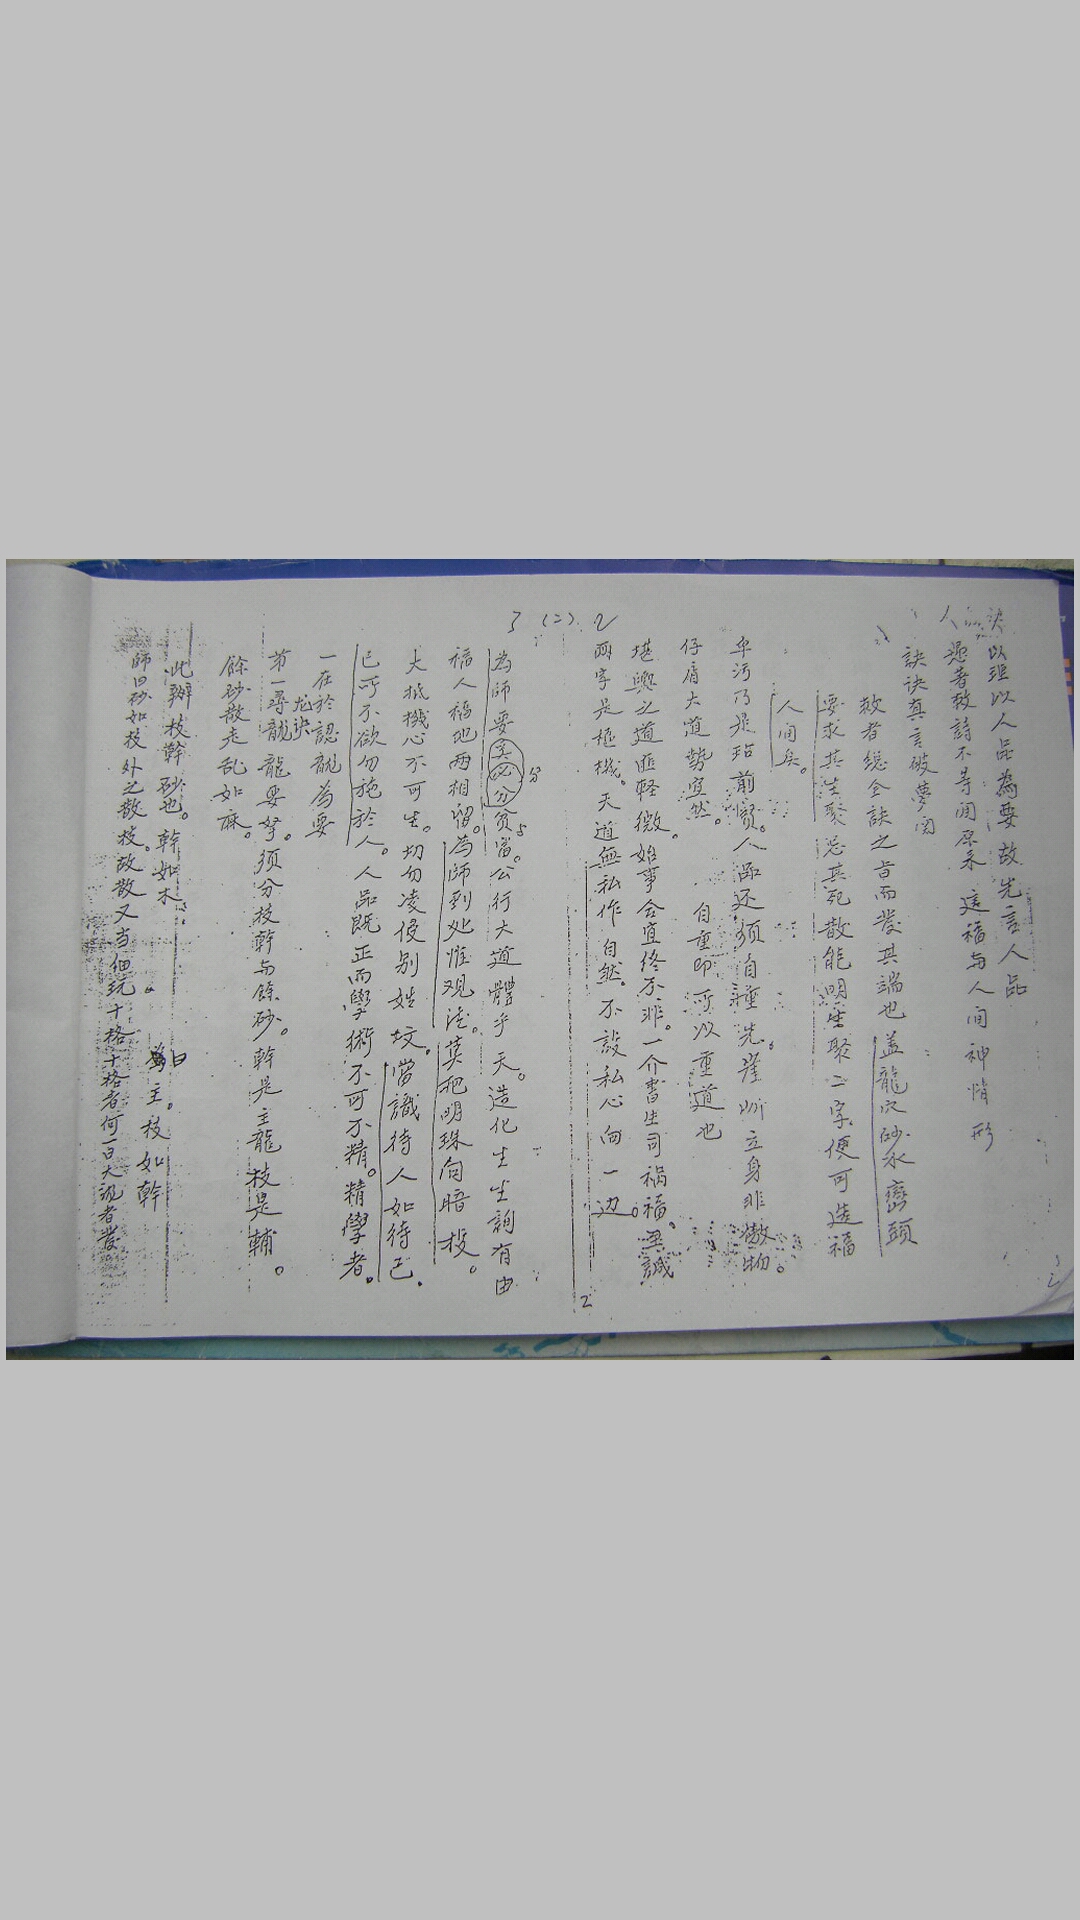 訣以理以人品為要故先言人品
人
遇著教詩不等閒原来 這福与人间神情形
訣诀真言破夢闲
救者総全訣之旨而發其端也 盖龍穴砂水巒頭
要求其生聚忌其死散能明生聚二字便可造福
人间矣。
卑污乃是玷前贤。人品还须自重先。 立身非傲物。
仔肩大道勢宜然。 自重即可以重道也
堪輿之道匪轻微。始事合宜终不非。一介書生司祸福。至誠
两字是樞機。天道無私作自然。不設私心向一边。
2
3 (二) 2
為師要 分贫富。公行大道體乎天。造化生生詢有由
分
福人福地两相留。為師到处惟观法。莫把明珠向暗投。
大抵機心不可生。切勿凌侵别姓坟。當識待人如待己。
已所不欲勿施於人。人品既正而學術不可不精。精學者。
一在於認龍為要
龙诀
第一尋龍龍要孥。须分枝幹与餘砂。幹是主龍枝是輔。
餘砂散走乱如麻。
此辦枝幹砂也。幹如木 主。枝如幹
師曰砂如枝外之散枝。故散又当細玩十格十格者何一曰大頭者發